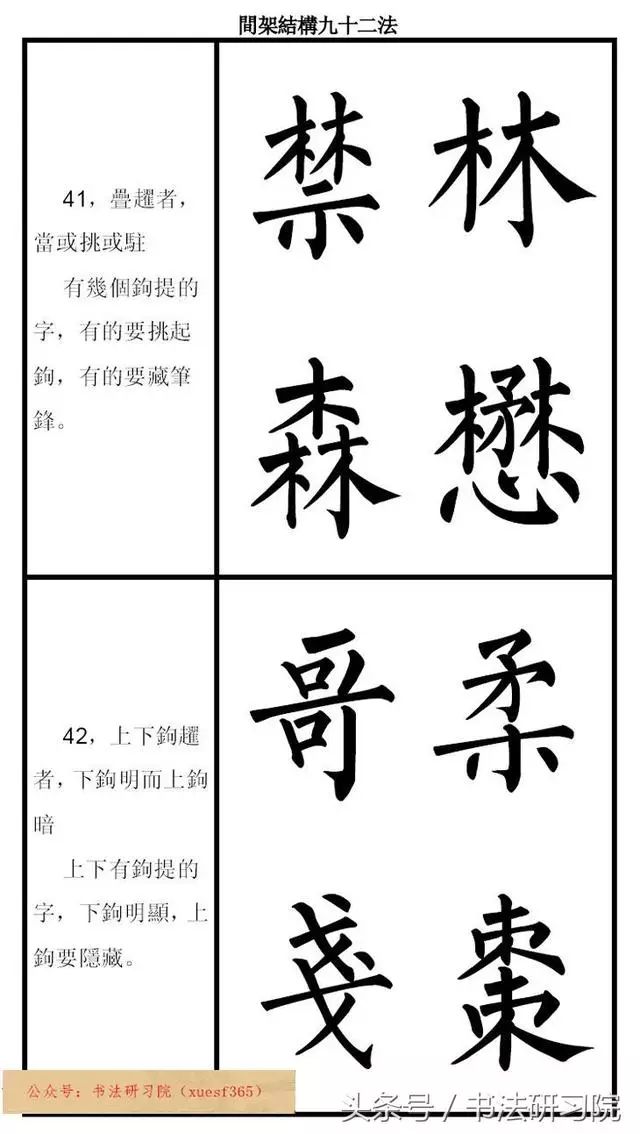 間架結構九十二法
41，疊趯者，
當或挑或駐
有幾個鉤提的
字，有的要挑起
鉤，有的要藏筆
鋒。
禁 林
森 懋
42，上下鉤趯
者，下鉤明而上鉤
暗
上下有鉤提的
字，下鉤明顯，上
鉤要隱藏。
哥 柔
戔 棗
公众号：书法研习院（xuesf365）
头条号 / 书法研习院